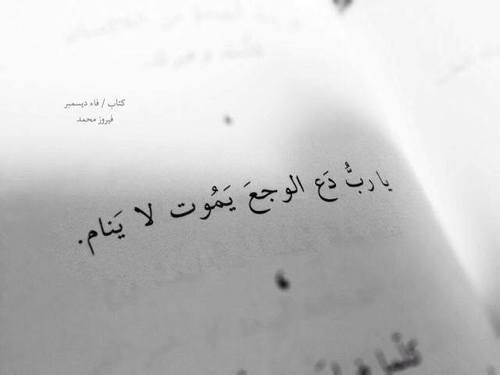 كتاب / فاء ديسمبر
فيروز محمد
يا ربُّ دَع الوجعَ يَمُوت لا يَنام.